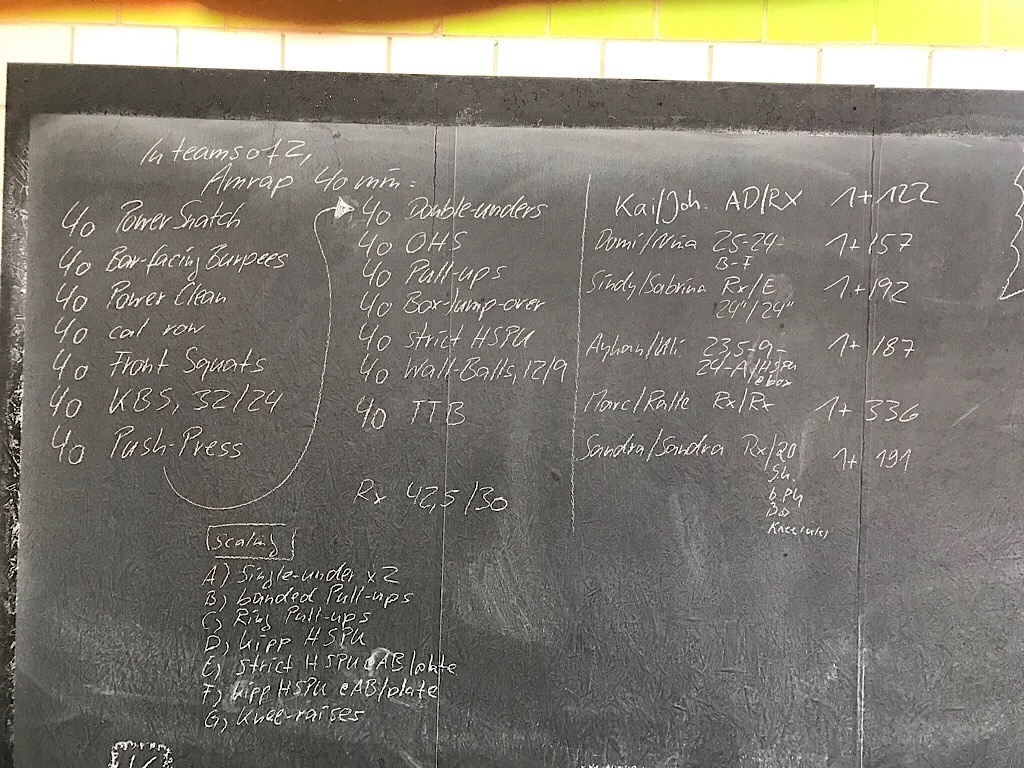 In teams of 2,
Amrap 40 min:
40 Power Snatch
40 Bar-facing Burpees
40 Power Clean
40 cal row
40 Front Squats
40 KBS, 32/24
40 Push-Press
40 Double-unders
40 OHS
40 Pull-ups
40 Box-Jump-over
40 strict HSPU
40 Wall-Balls, 12/9
40 TTB
Rx 42,5/30
Scaling
A) Single-under x2
B) banded Pull-ups
C) Ring Pull-ups
D) kipp HSPU
E) strict HSPU eAB/plate
F) kipp HSPU eAB/plate
G) Knee-raises
Kai/Joh. AD/RX 1+122
Domi/Nina 25-24- 1+157
B-F
Sindy/Sabrina Rx/E 1+192
24"/24"
Ayhan/Uli 23,5-9- 1+187
24-A/HSPU
e box
Marc/Ralle Rx/Rx 1+336
Sandra/Sandra Rx/20 1+191
Su.